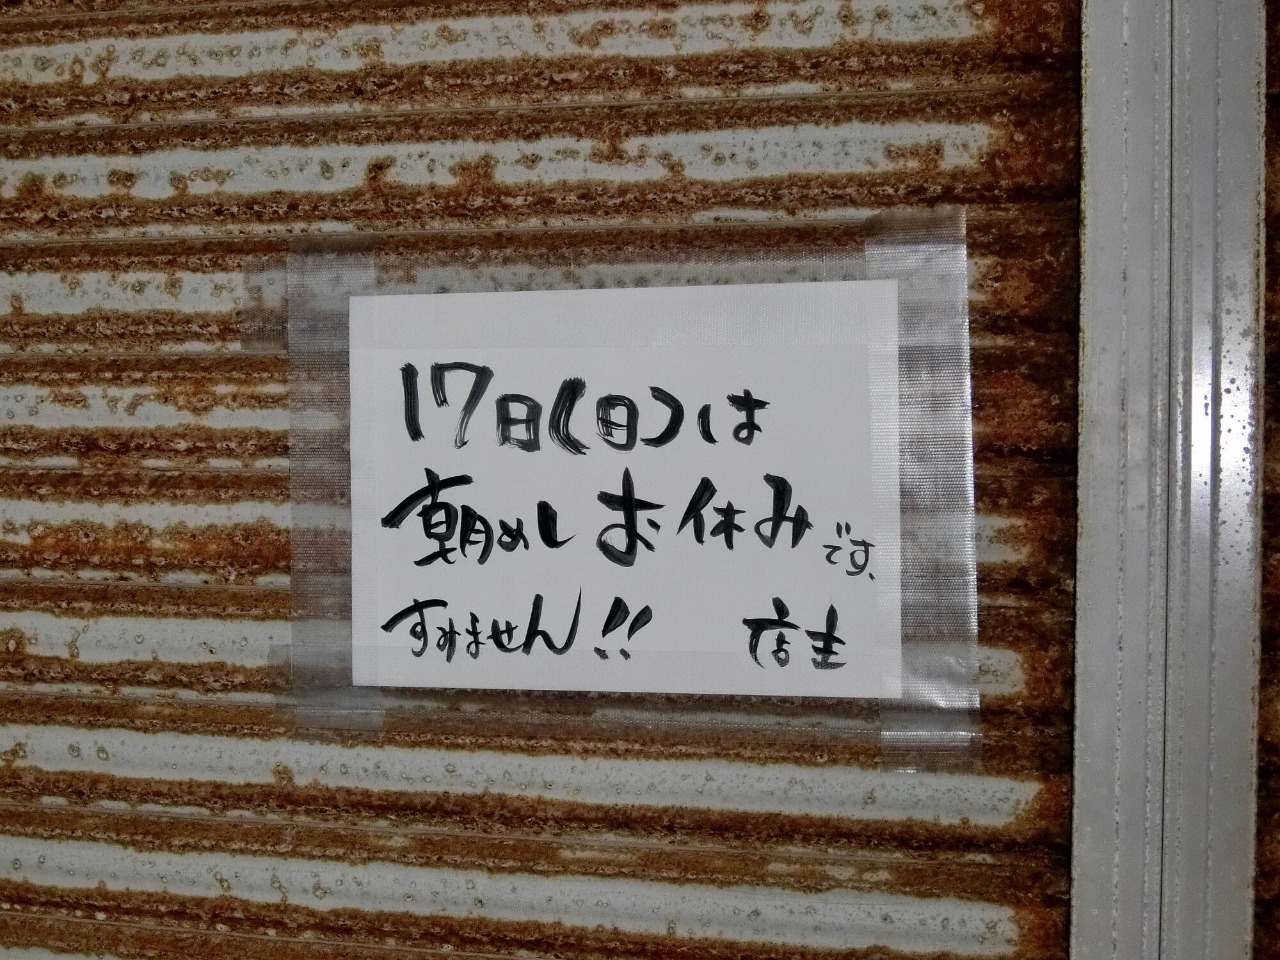 17日(日)は
朝めしお休みです.
すみません!! 店主